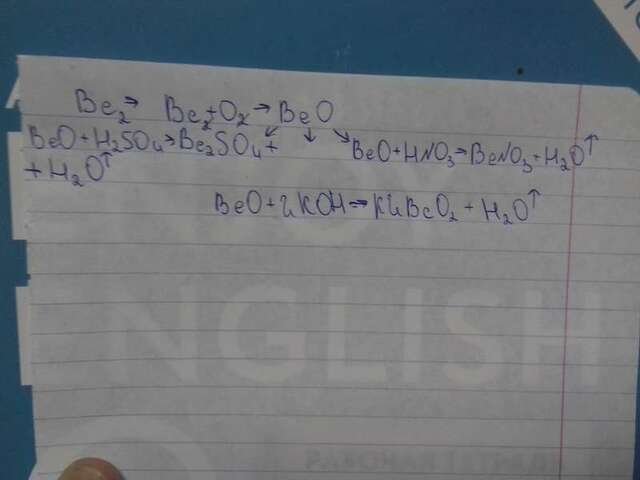 Be₂→ Be₂+O₂→BeO
↙ ↓ ↘
BeO+H₂SO₄→Be₂SO₄+
+H₂O↑
BeO+HNO₃→BeNO₃+H₂O↑
BeO+2KOH→K2BeO₂+H₂O↑
ENGLISH